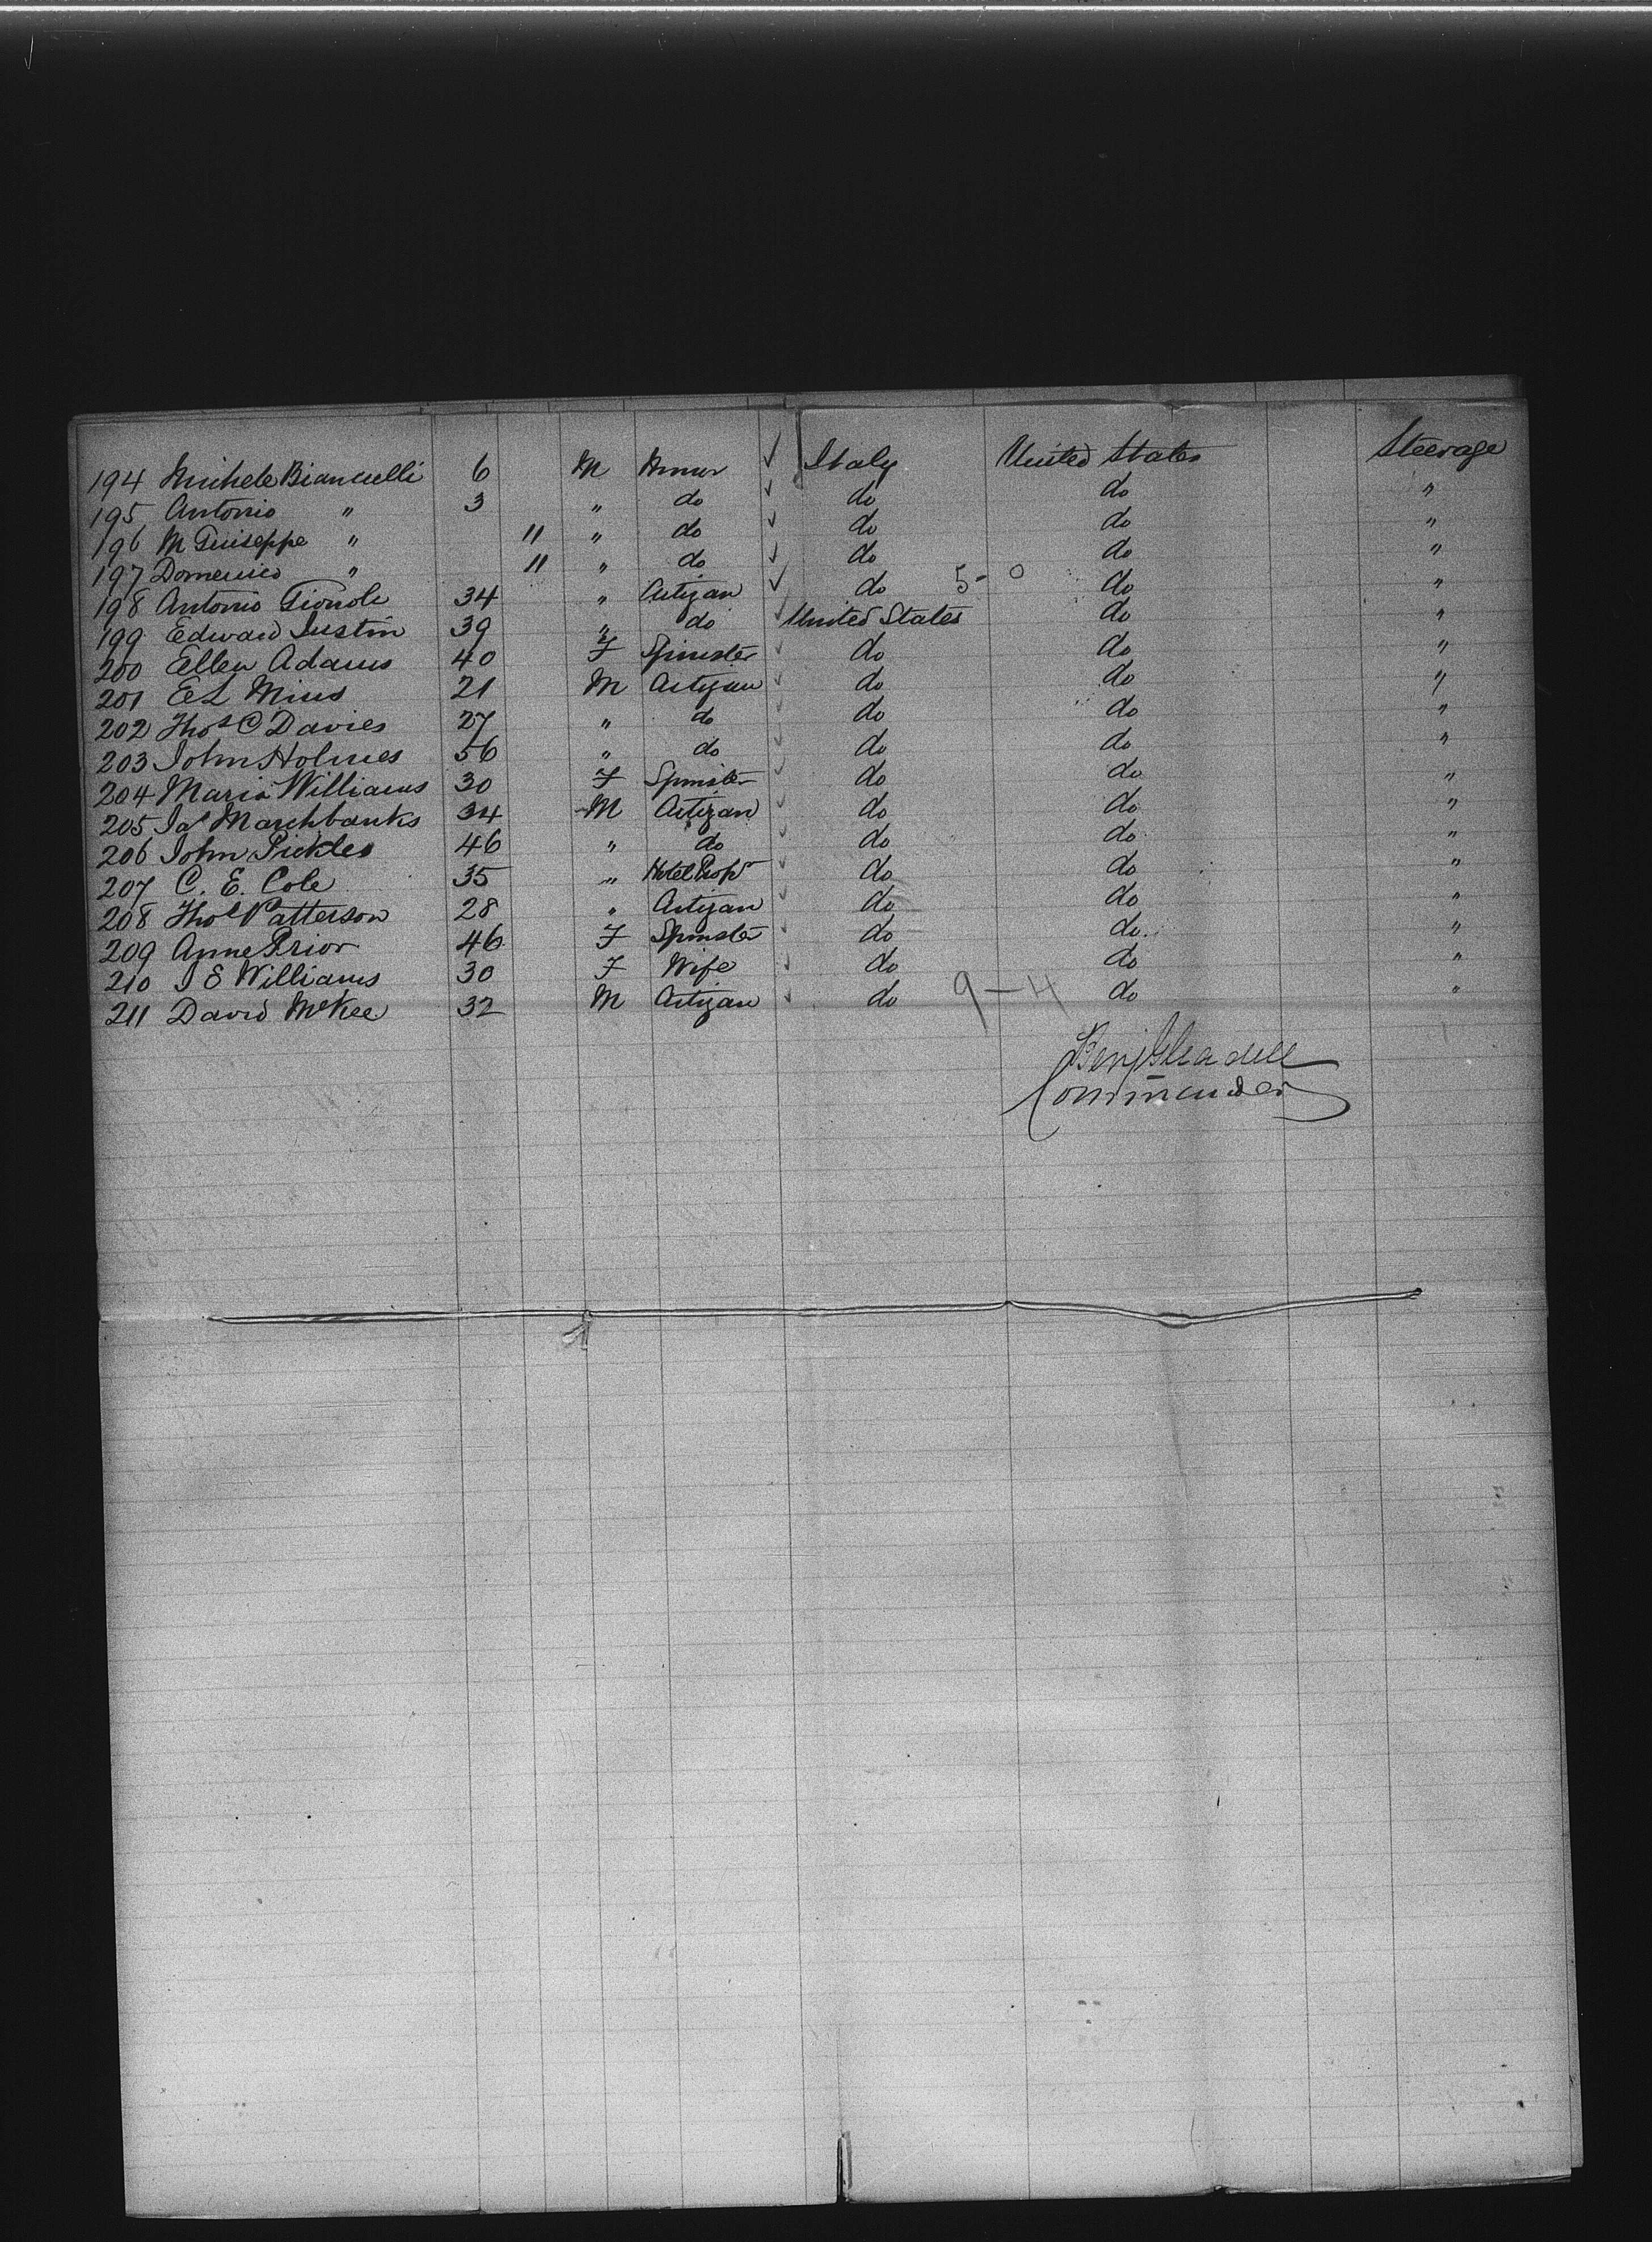 194 Michele Biancuelli 6 M Minor ✓ Italy United States Steerage
195 Antonio " 3 " do ✓ do do "
196 M Guiseppe " 11 " do ✓ do do "
197 Domenico " 11 " do ✓ do do "
198 Antonio 34 " Artizan ✓ do 5-0 do "
199 Edward Justin 39 " do ✓ United States do "
200 Ellen Adams 40 F Spinster ✓ do do "
201 E L Mius 21 M Artizan ✓ do do "
202 Thos C Davies 27 " do ✓ do do "
203 John Holmes 56 " do ✓ do do "
204 Maria Williams 30 F Spinster ✓ do do "
205 Jas Marchbanks 34 M Artizan ✓ do do "
206 John Pickles 46 " do ✓ do do "
207 C. E. Cole 35 " Hotel Propr ✓ do do "
208 Thos Patterson 28 " Artizan ✓ do do "
209 Anne Prior 46 F Spinster ✓ do do. "
210 J E Williams 30 F Wife ✓ do do "
211 David McKee 32 M Artizan ✓ do 9-4 do "
Benj Gleadell
Commander